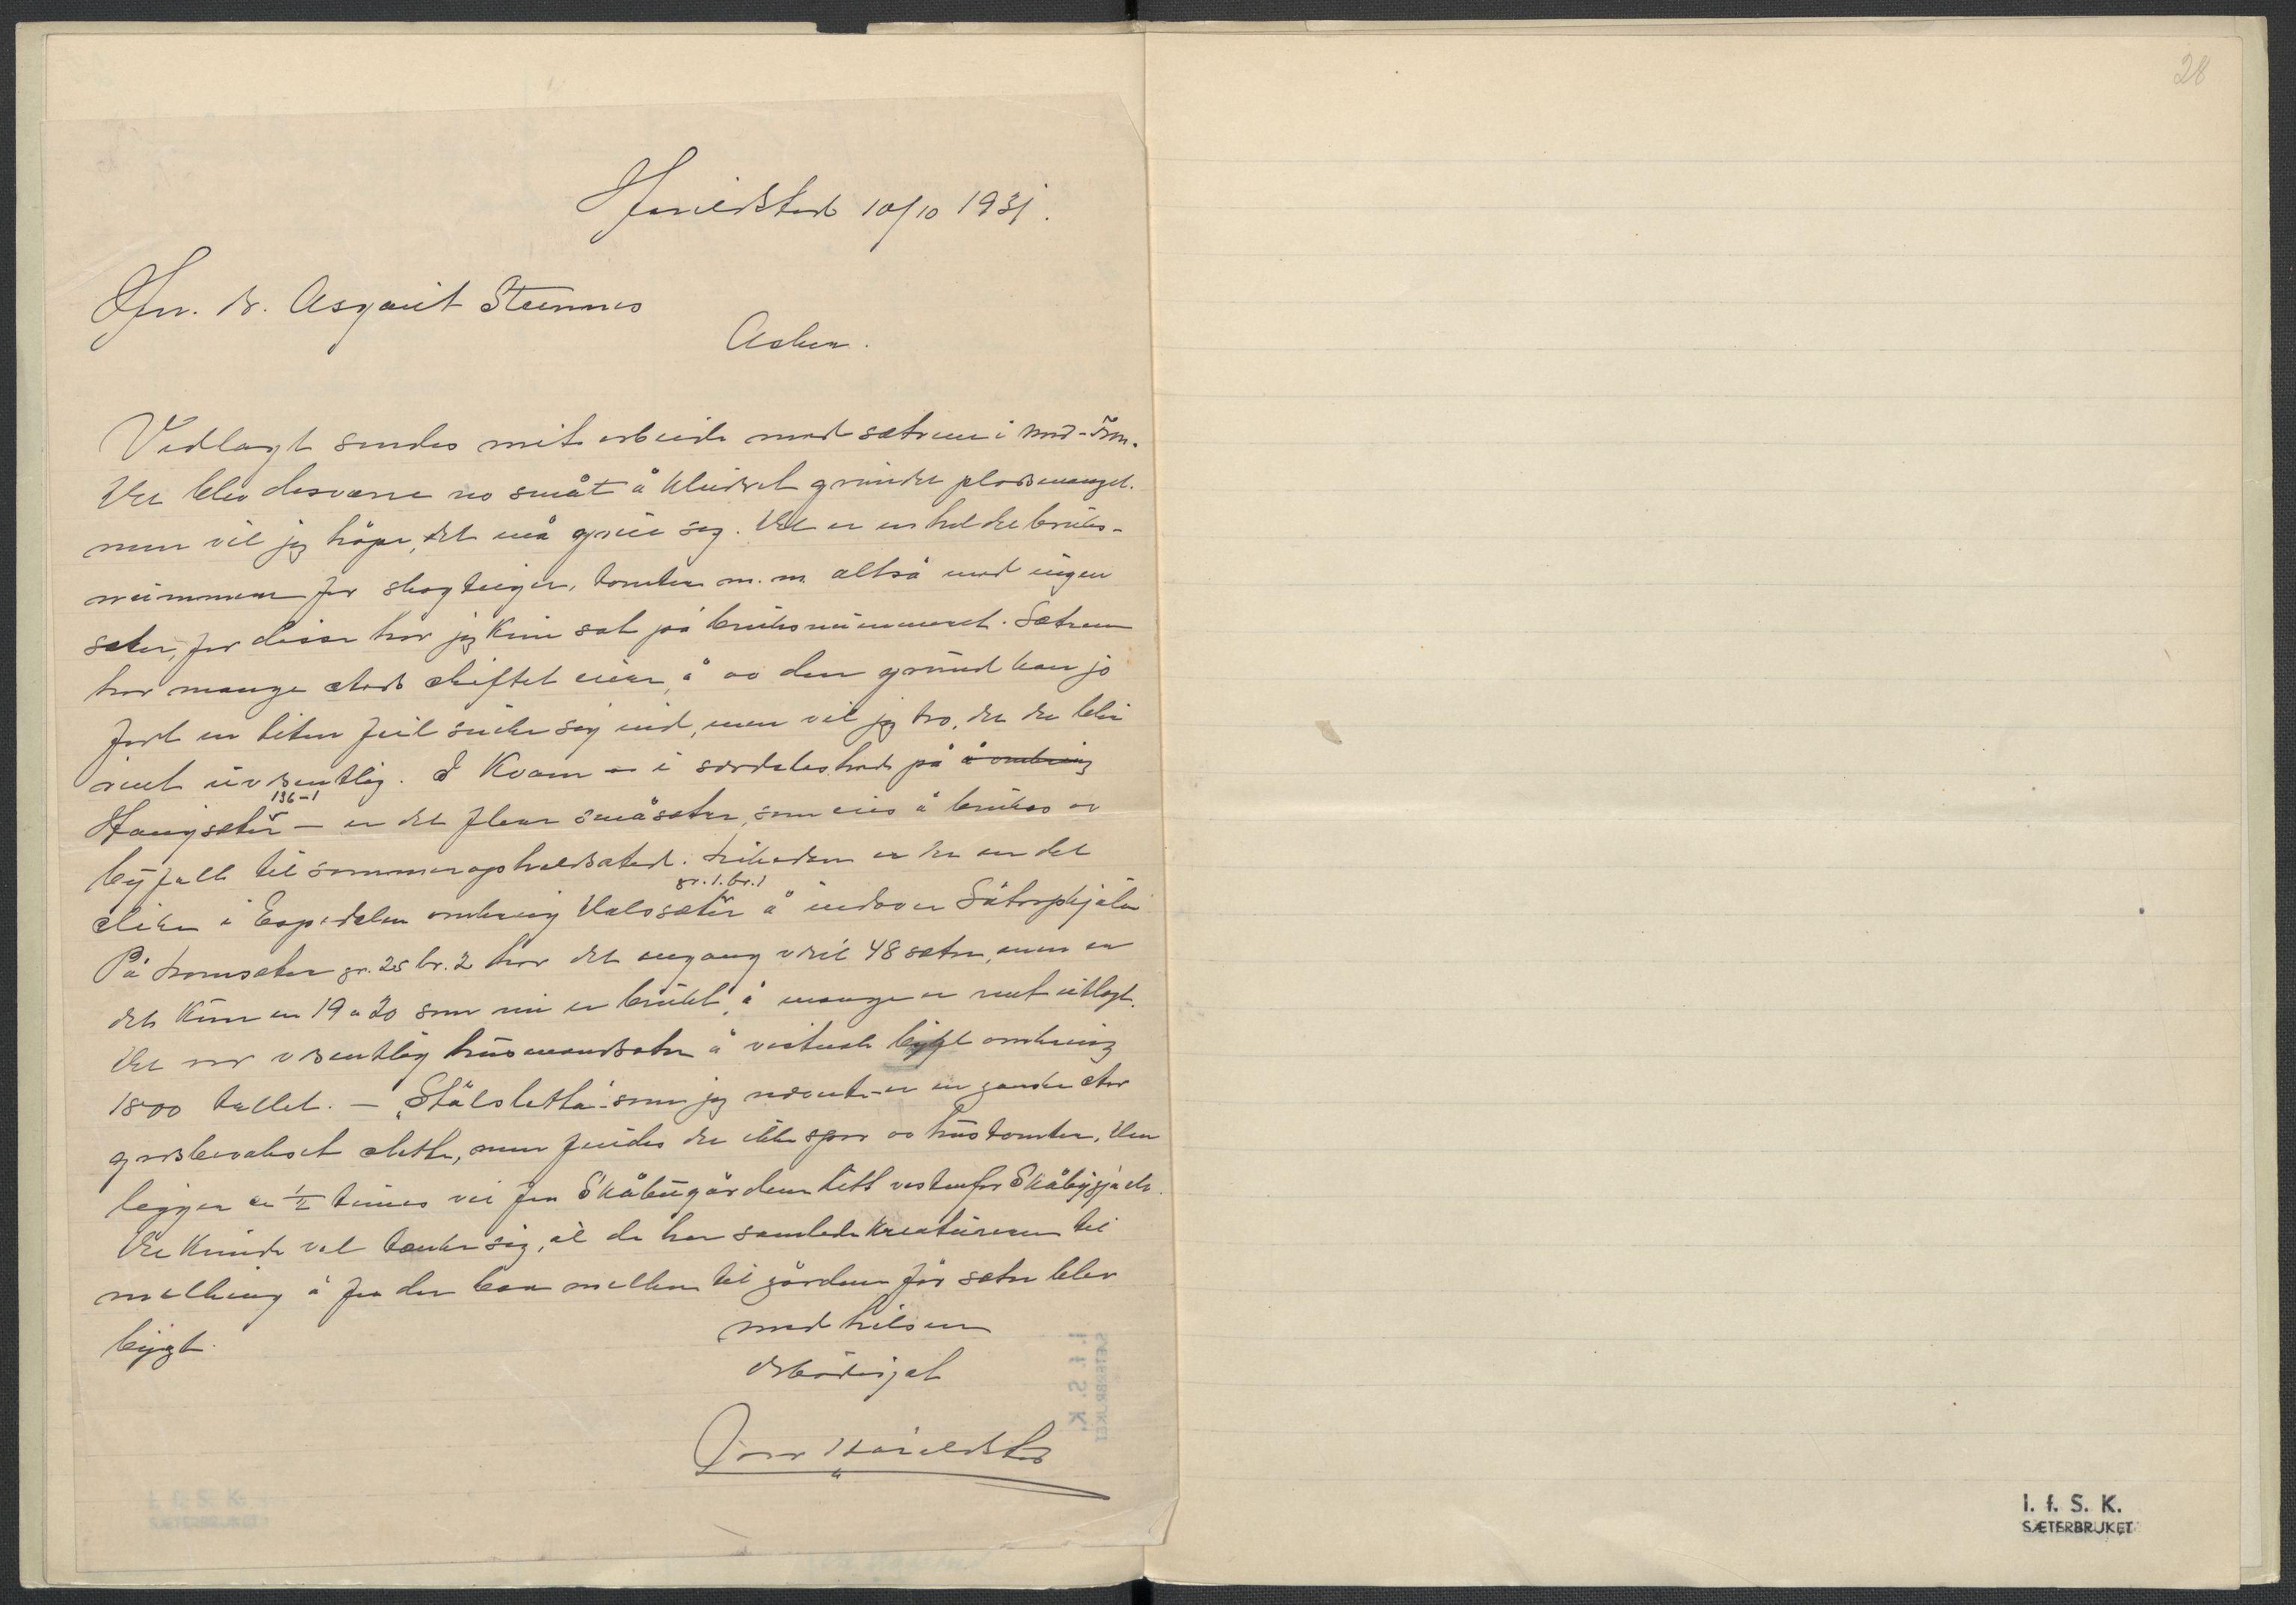 28
Harildstad 10/10 1931.
Hr. dr. Asgaut Steinnes
Asker.
Vedlagt sendes mit arbeide med sætrene i Nord-Fron.
Det blev desværre no småt å kludret grundet plassmangel.
men vil jeg håpe, det må greie seg. Det er en hel del bruks-
nummer for skogteiger, tomter m.m. altså med ingen
sæter, for disse har jeg kun sat på bruksnummeret. Sætrene
har mange steds skiftet eier, å av den grund kan jo
fort en liten feil snike sig ind, men vil jeg tro, det der blir
rent uvesentlig. I Kvam – i særdeleshed på å omkring
196-1
Haugsætr – er det flere småsætre, som eies å brukes av
byfolk til sommeropholdssted. Likedan er der en del
gr. 1. br. 1
slike i Espedalen omkring Valssætr å indover Såtorpkjølen
På Fornsæter gr. 25 br. 2 har det engang vært 48 sætre, men er
det kun en 19 a 20 som nu er brukt, å mange er rent utlagt.
Det var vesentlig husmandssætre å visstnok bygt omkring
1800 tallet. – "Stålsletta" som jeg nevnte – er en ganske stor
gressbevokset slette, men findes der ikke spor av hustomter. Den
ligger ca ½ times vei fra Skåbugårdene tett vestenfor Skåbygjæla.
Det kunde vel tænke sig, at de her samlede kreaturene til
melking å fra der bar melken til gårdene før sætre blev
bygt.
med hilsen
ærbødigst
Ivar Harildstad
I. f. S. K.
SÆTERBRUKET
I. f. S. K.
SÆTERBRUKET
I. f. S. K.
SÆTERBRUKET